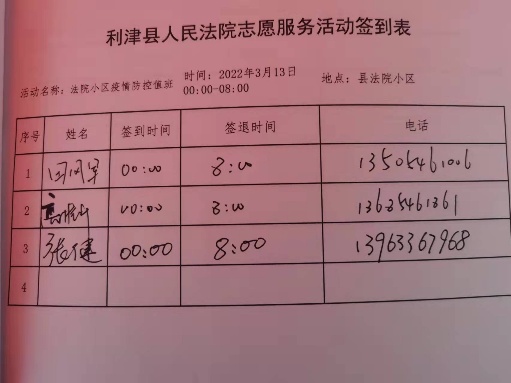 利津县人民法院志愿服务活动签到表
活动名称：法院小区疫情防控值班 时间：2022年3月13日 00:00-08:00 地点：县法院小区
序号 姓名 签到时间 签退时间 电话
1 00:00 8:00 13505461006
2 00:00 8:00 13625461361
3 张健 00:00 8:00 13963367968
4